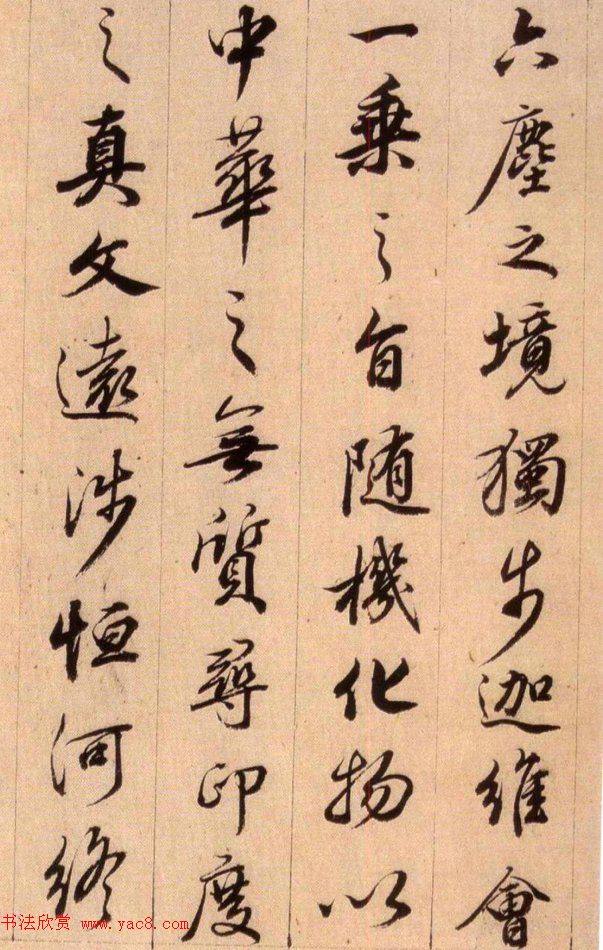 六塵之境獨步迦維會
一乗之旨随機化物以
中華之無質尋印度
之真文遠涉恒河終
书法欣赏 www.yac8.com